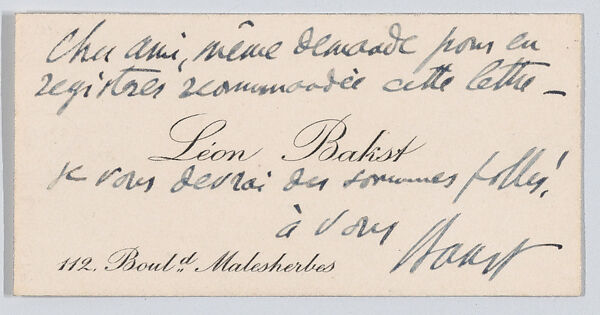 Cher ami, même demande pour en
registrer recommandée cette lettre –
Léon Bakst
je vous devrai des sommes folles!
à vous
Bakst
112. Boul.d Malesherbes